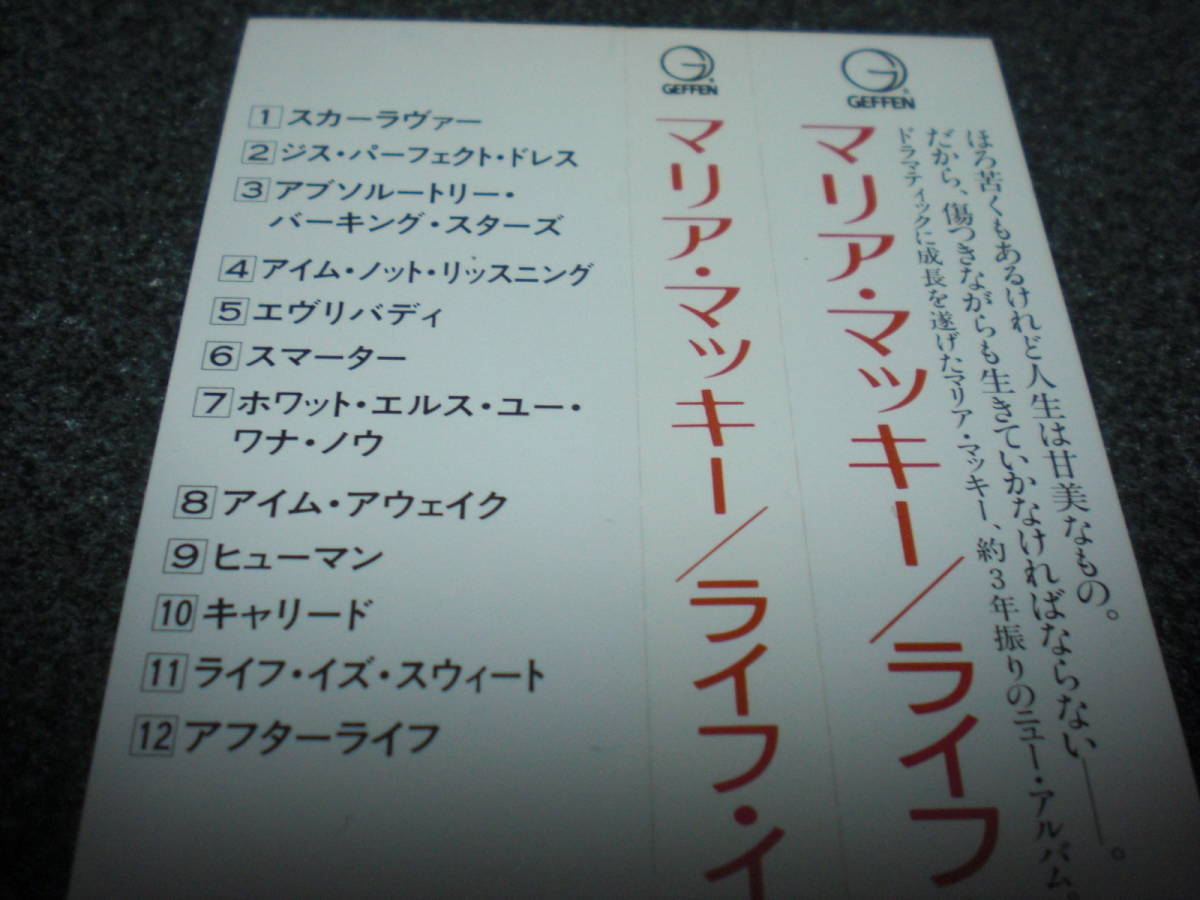 1 スカーラヴァー
2 ジス・パーフェクト・ドレス
3 アブソルートリー・
バーキング・スターズ
4 アイム・ノット・リッスニング
5 エヴリバディ
6 スマーター
7 ホワット・エルス・ユー・
ワナ・ノウ
8 アイム・アウェイク
9 ヒューマン
10 キャリード
11 ライフ・イズ・スウィート
12 アフターライフ
G
GEFFEN
マリア・マッキー/ライフ・イ
G
GEFFEN
マリア・マッキー/ライフ
ほろ苦くもあるけれど人生は甘美なもの。
だから、傷つきながらも生きていかなければならない――。
ドラマティックに成長を遂げたマリア・マッキー、約3年振りのニュー・アルバム。